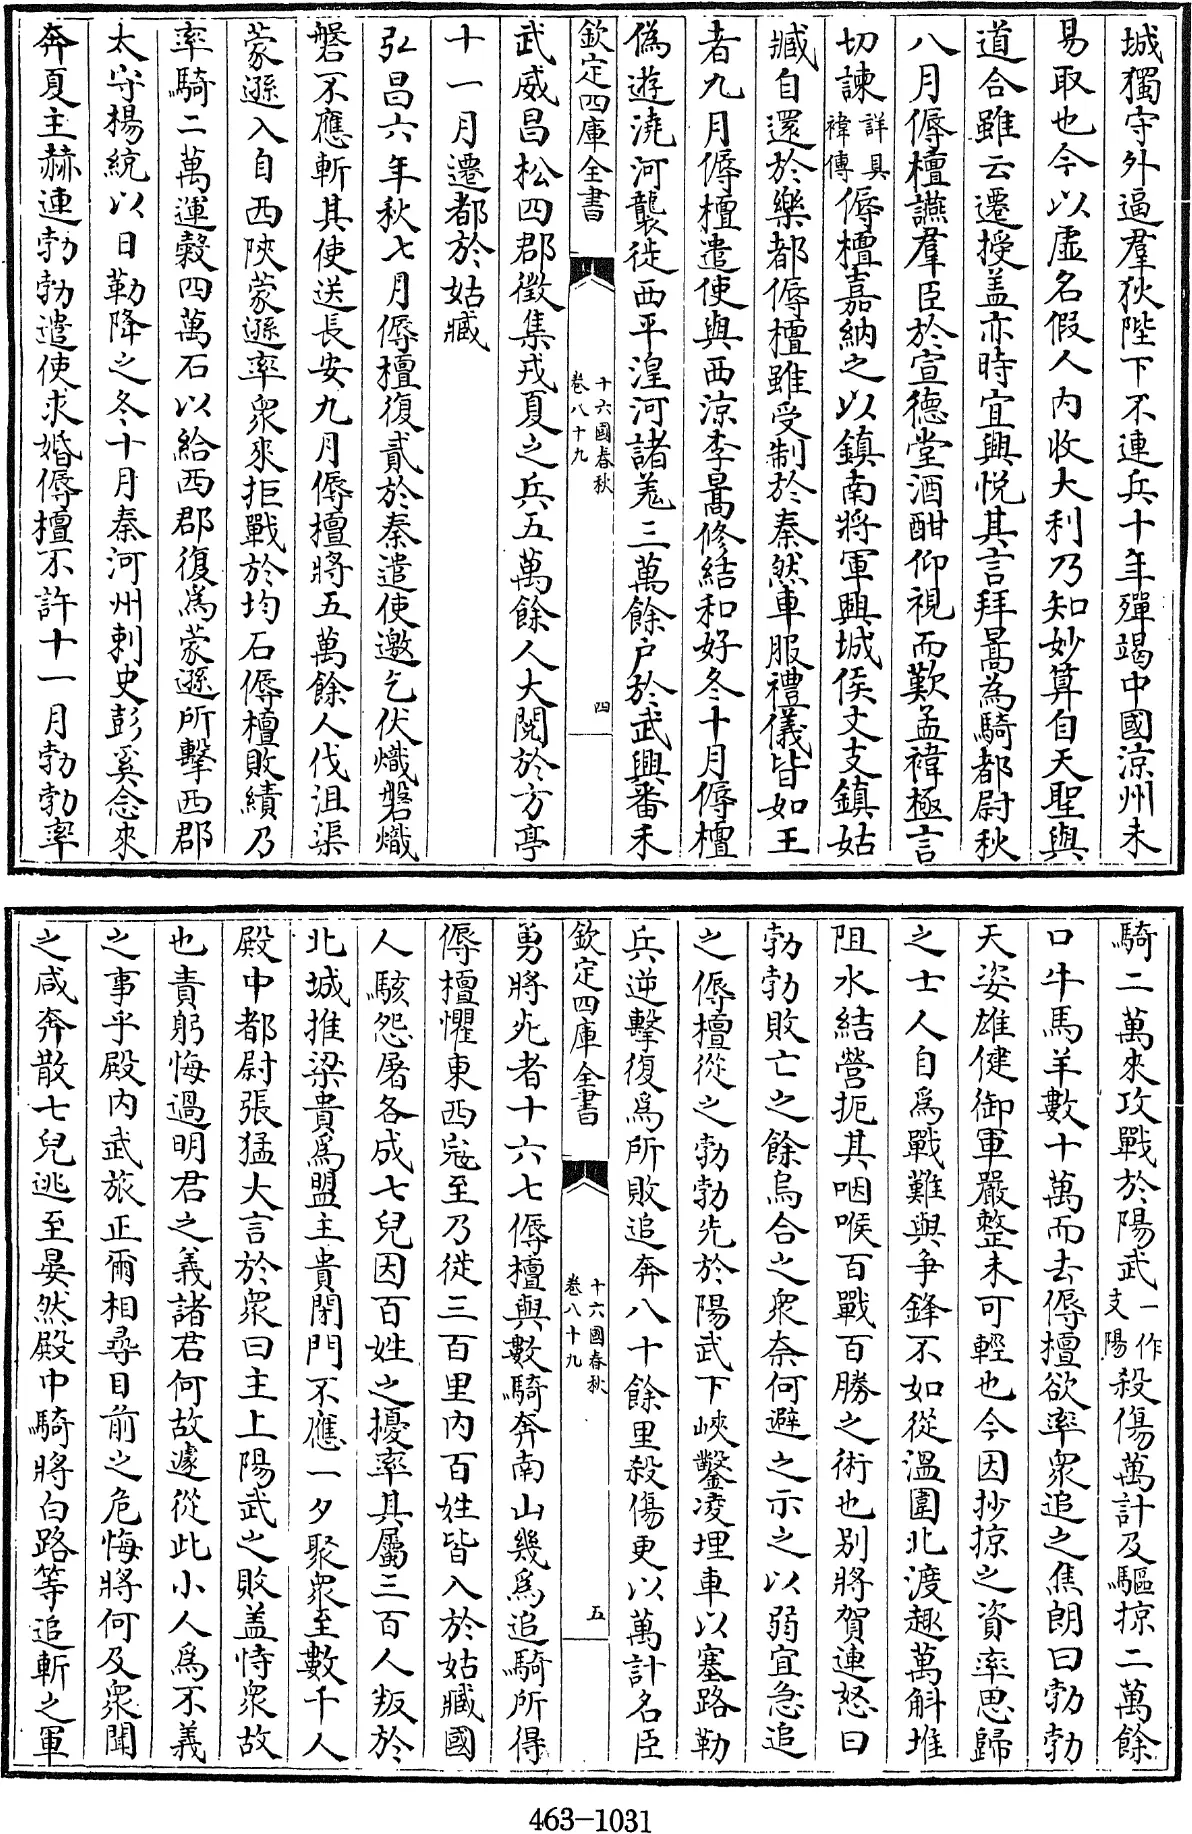 城獨守外逼羣狄陛下不連兵十年殫竭中國涼州未
易取也今以虛名假人內收大利乃知妙算自天聖與
道合雖云遷授盖亦時宜興悅其言拜暠為騎都尉秋
八月傉檀讌羣臣於宣德堂酒酣仰視而歎孟禕極言
切諫詳具禕傳傉檀嘉納之以鎮南將軍興城侯文支鎮姑
臧自還於樂都傉檀雖受制於秦然車服禮儀皆如王
者九月傉檀遣使與西涼李暠修結和好冬十月傉檀
偽遊澆河襲徙西平湟河諸羌三萬餘户於武興番禾
欽定四庫全書
十六國春秋
卷八十九
四
武威昌松四郡徵集戎夏之兵五萬餘人大閱於方亭
十一月遷都於姑臧
弘昌六年秋七月傉檀復貳於秦遣使邀乞伏熾磐熾
磐不應斬其使送長安九月傉檀將五萬餘人伐沮渠
蒙遜入自西陝蒙遜率衆來拒戰於均石傉檀敗績乃
率騎二萬運穀四萬石以給西郡復為蒙遜所擊西郡
太守楊統以日勒降之冬十月秦河州刺史彭奚念來
奔夏主赫連勃勃遣使求婚傉檀不許十一月勃勃率
騎二萬來攻戰於陽武一作支陽殺傷萬計及驅掠二萬餘
口牛馬羊數十萬而去傉檀欲率衆追之焦朗曰勃勃
天姿雄健御軍嚴整未可輕也今因抄掠之資率思歸
之士人自為戰難與爭鋒不如從溫圍北渡趣萬斛堆
阻水結營扼其咽喉百戰百勝之術也别將賀連怒曰
勃勃敗亡之餘烏合之衆奈何避之示之以弱宜急追
之傉檀從之勃勃先於陽武下峽鑿凌埋車以塞路勒
兵逆擊復為所敗追奔八十餘里殺傷更以萬計名臣
欽定四庫全書
十六國春秋
卷八十九
五
勇將死者十六七傉檀與數騎奔南山幾為追騎所得
傉檀懼東西寇至乃徙三百里內百姓皆入於姑臧國
人駭怨屠各成七兒因百姓之擾率其屬三百人叛於
北城推梁貴為盟主貴閉門不應一夕聚衆至數千人
殿中都尉張猛大言於衆曰主上陽武之敗盖恃衆故
也責躬悔過明君之義諸君何故遽從此小人為不義
之事乎殿內武旅正爾相尋目前之危悔將何及衆聞
之咸奔散七兒逃至晏然殿中騎將白路等追斬之軍
463-1031